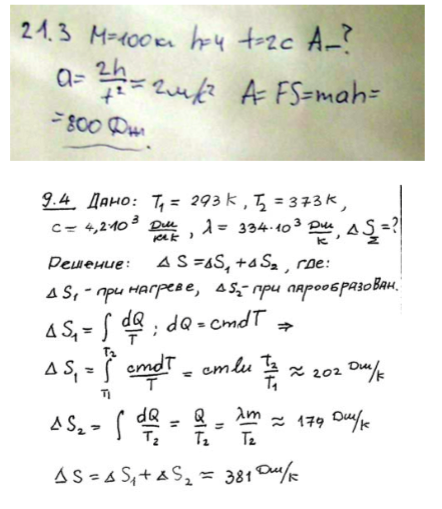 21.3 M=100кг h=4 t=2c A–?
a= 2h/t² = 2м/c² A= FS=mah=
=800 Дж.
9.4 Дано: T₁ = 293 K, T₂ = 373 K,
c = 4,2·10³ Дж/кг·К, λ = 334·10³ Дж/К, ΔS_Σ=?
Решение: ΔS=ΔS₁+ΔS₂, где:
ΔS₁ - при нагреве, ΔS₂- при парообразован.
ΔS₁ = ∫ dQ/T; dQ = cmdT ⇒
ΔS₁ = ∫_T₁^T₂ cmdT/T = cmln T₂/T₁ ≈ 202 Дж/К
ΔS₂ = ∫ dQ/T₂ = Q/T₂ = λm/T₂ ≈ 179 Дж/К
ΔS = ΔS₁+ΔS₂ ≈ 381 Дж/К